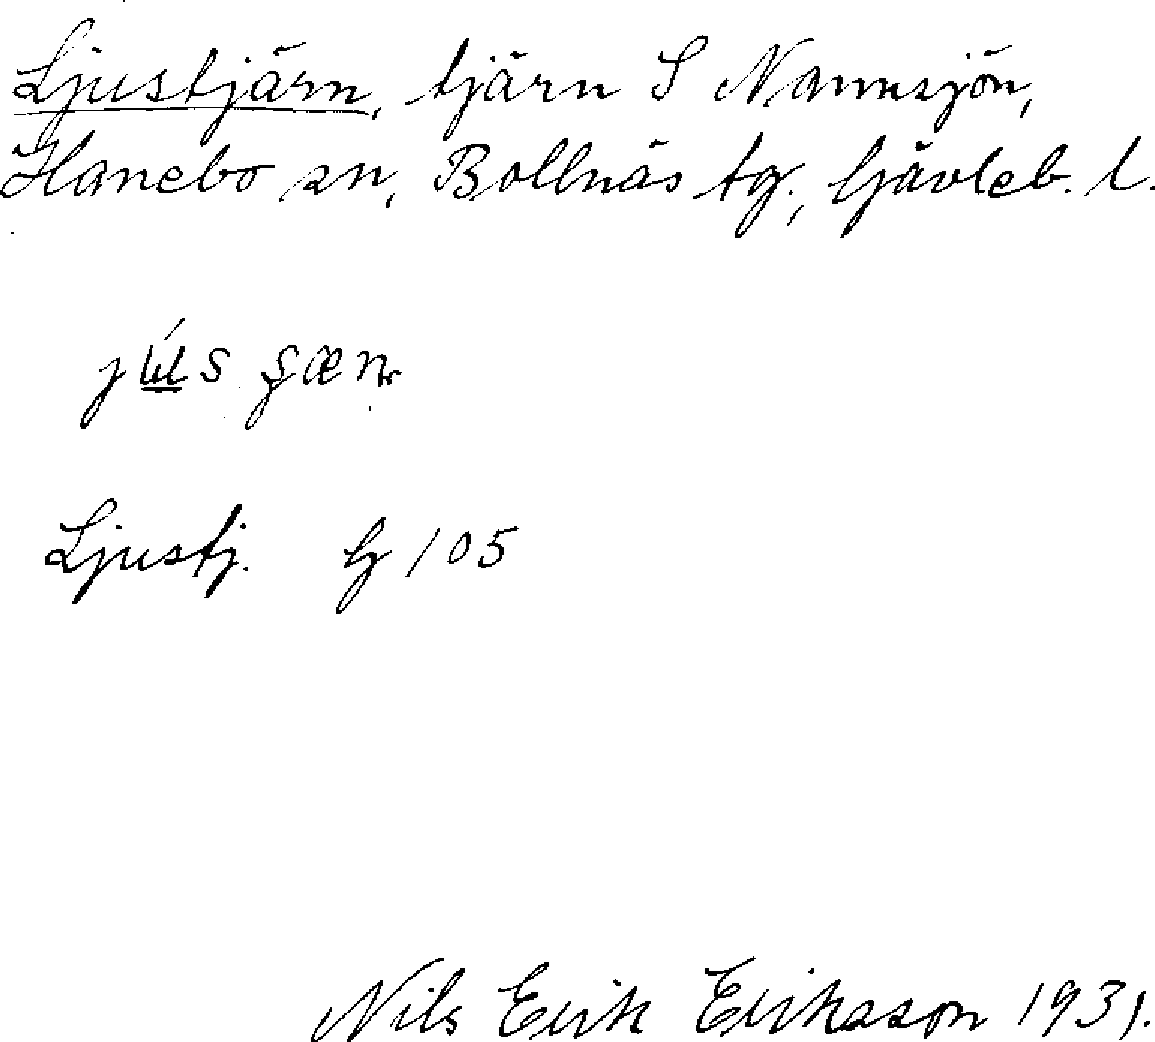 Ljustjärn, tjärn S Nannsjön,
Hanebo sn, Bollnäs tg., Gävleb. l.
Ljustj. G 105
Nils Erik Erikson 1931.